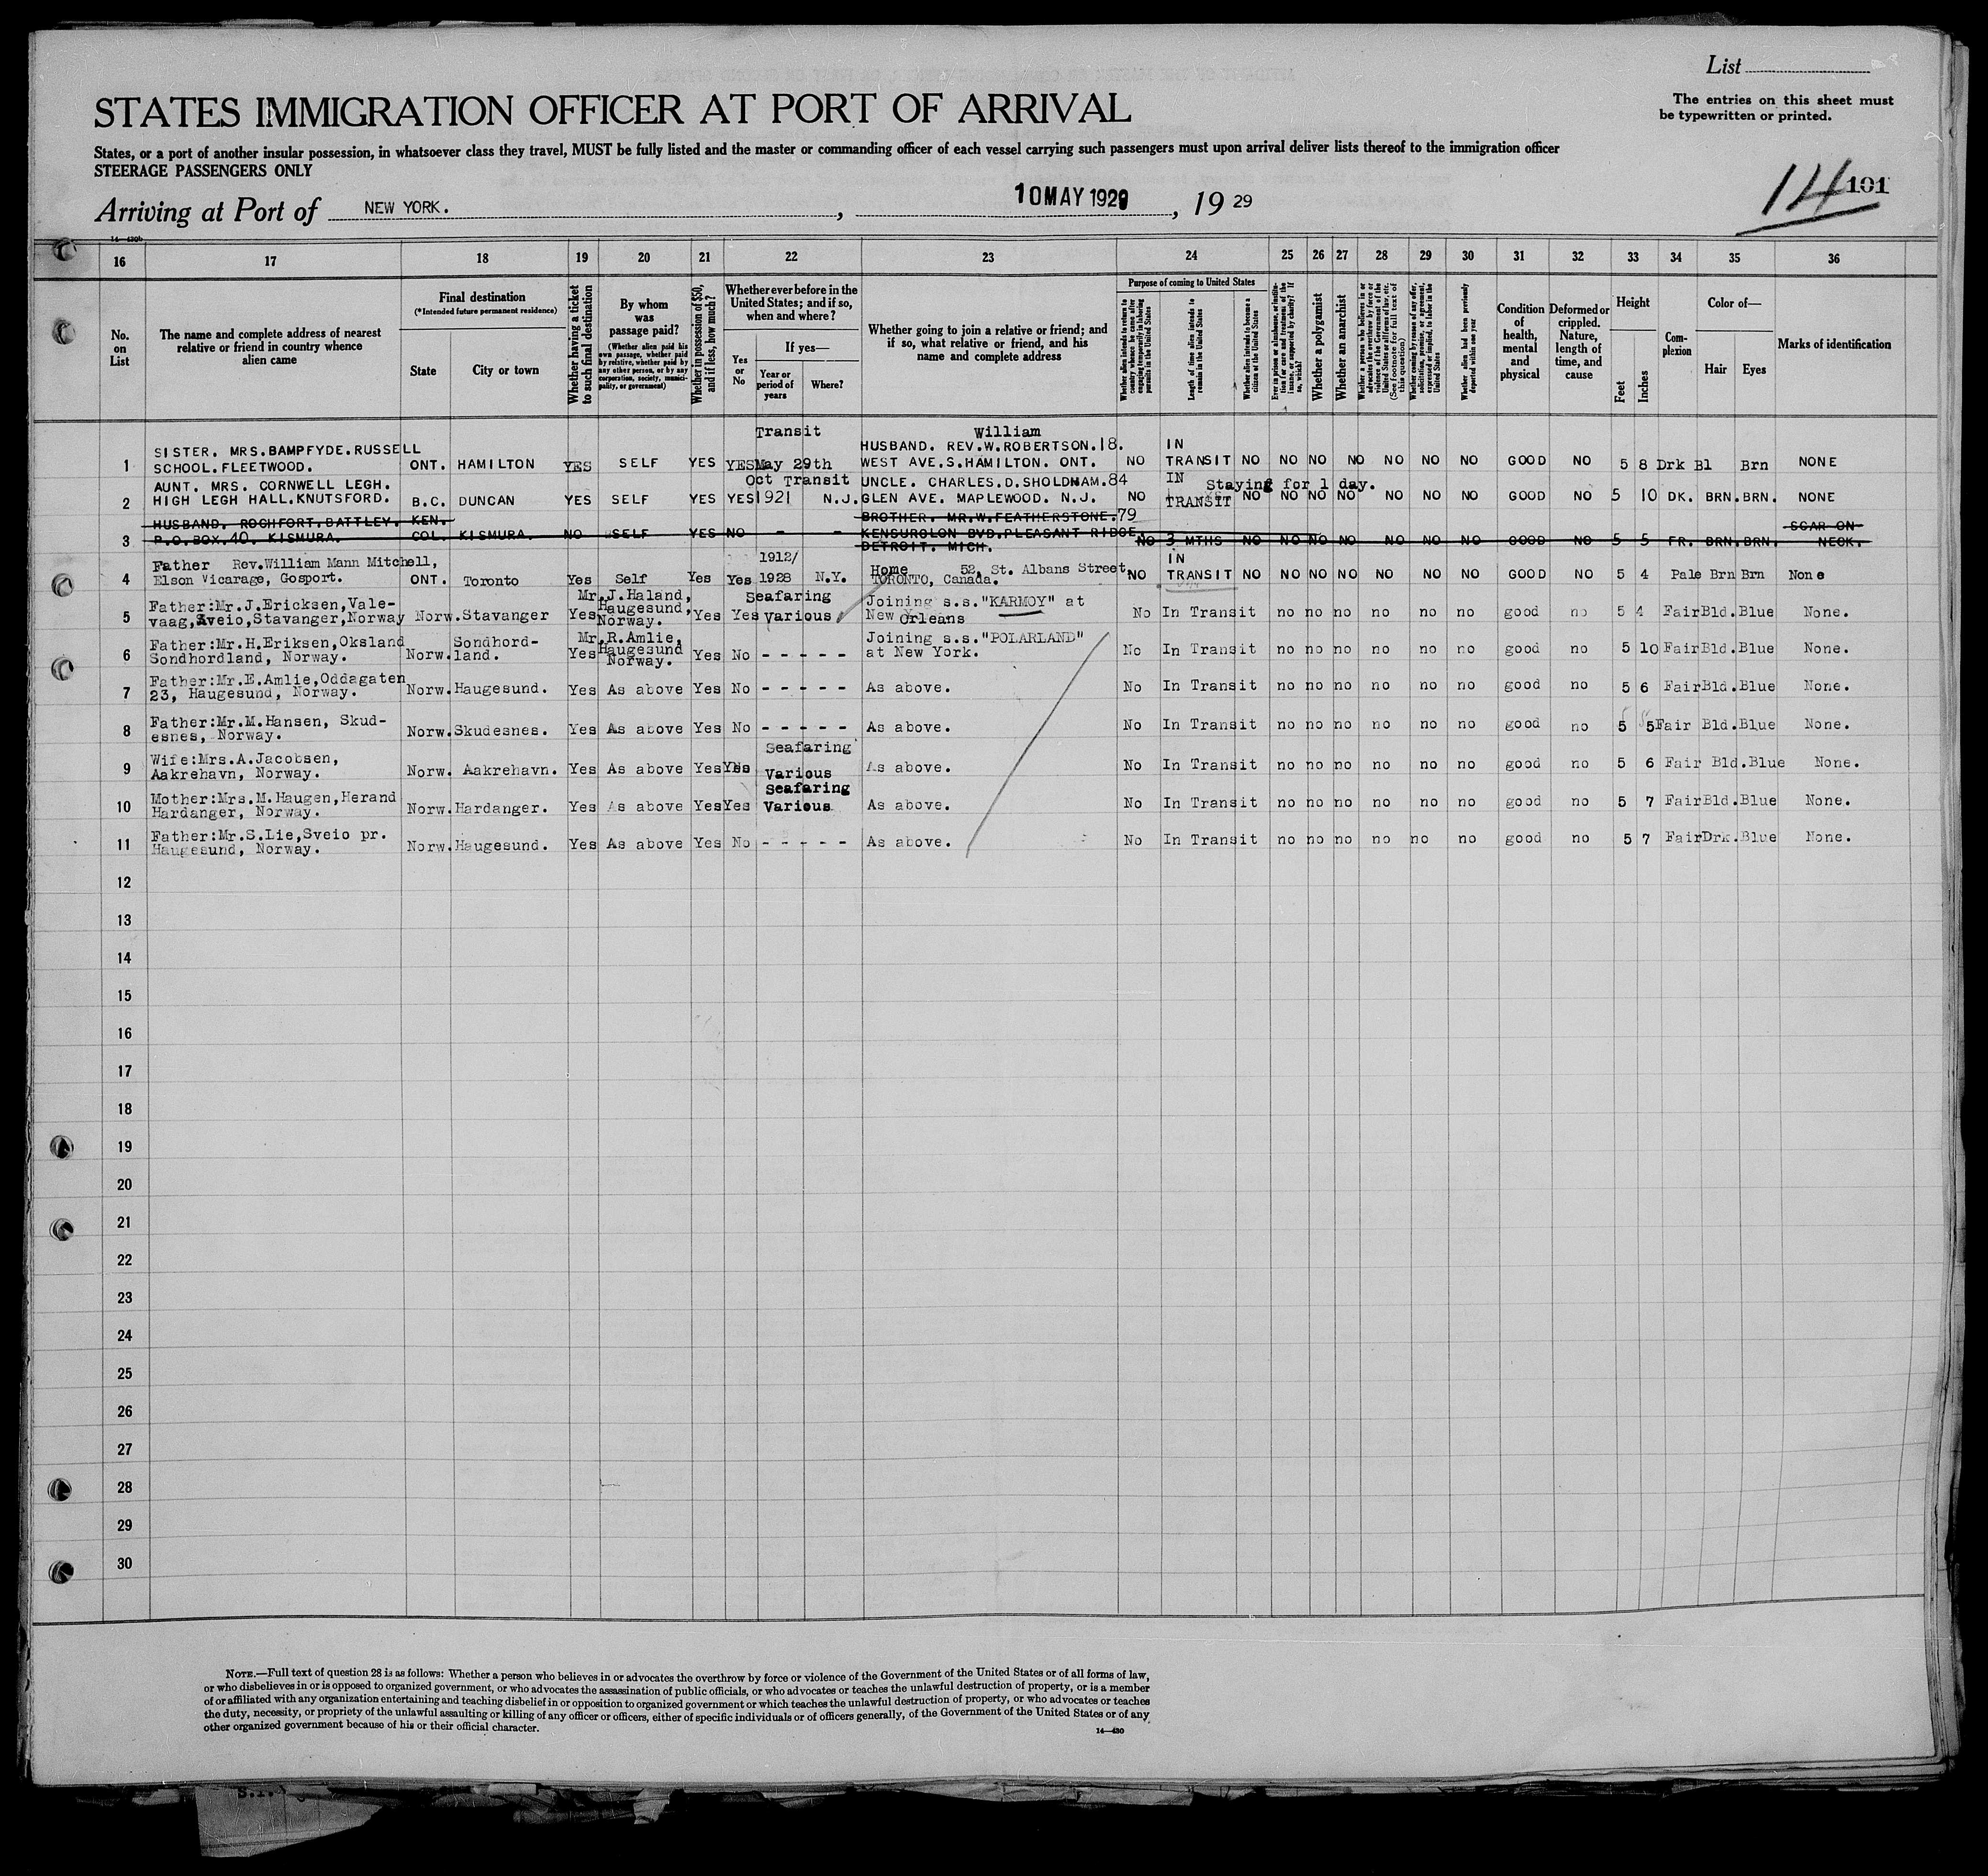 List
STATES IMMIGRATION OFFICER AT PORT OF ARRIVAL
The entries on this sheet must
be typewritten or printed.
States, or a port of another insular possession, in whatsoever class they travel, MUST be fully listed and the master or commanding officer of each vessel carrying such passengers must upon arrival deliver lists thereof to the immigration officer
STEERAGE PASSENGERS ONLY
14 191
Arriving at Port of NEW YORK. , 10 MAY 1929 , 19 29
14—430b
16 17 18 19 20 21 22 23 24 25 26 27 28 29 30 31 32 33 34 35 36
No. on List
The name and complete address of nearest relative or friend in country whence alien came
Final destination
(*Intended future permanent residence)
State
City or town
Whether having a ticket to such final destination
By whom was passage paid?
(Whether alien paid his own passage, whether paid by relative, whether paid by any other person, or by any corporation, society, municipality, or government)
Whether in possession of $50, and if less, how much?
Whether ever before in the United States; and if so, when and where?
Yes or No
If yes—
Year or period of years
Where?
Whether going to join a relative or friend; and if so, what relative or friend, and his name and complete address
Purpose of coming to United States
Whether alien intends to return to country whence he came after engaging temporarily in laboring pursuits in the United States
Length of time alien intends to remain in the United States
Whether alien intends to become a citizen of the United States
Ever in prison or almshouse, or institution for care and treatment of the insane, or supported by charity? If so, which?
Whether a polygamist
Whether an anarchist
Whether a person who believes in or advocates the overthrow by force or violence of the Government of the United States or all forms of law, etc. (See footnote for full text of this question)
Whether coming by reason of any offer, solicitation, promise, or agreement, expressed or implied, to labor in the United States
Whether alien had been previously deported within one year
Condition of health, mental and physical
Deformed or crippled. Nature, length of time, and cause
Height
Feet
Inches
Complexion
Color of—
Hair
Eyes
Marks of identification
Transit William
SISTER. MRS.BAMPFYDE.RUSSELL HUSBAND. REV.W.ROBERTSON.18. IN
1 SCHOOL.FLEETWOOD. ONT. HAMILTON YES SELF YES YES May 29th WEST AVE.S.HAMILTON. ONT. NO TRANSIT NO NO NO NO NO NO NO GOOD NO 5 8 Drk Bl Brn NONE
AUNT. MRS. CORNWELL LEGH. Oct Transit UNCLE. CHARLES.D.SHOLDHAM.84 IN Staying for 1 day.
2 HIGH LEGH HALL.KNUTSFORD. B.C. DUNCAN YES SELF YES YES 1921 N.J. GLEN AVE. MAPLEWOOD. N.J. NO TRANSIT NO NO NO NO NO NO NO GOOD NO 5 10 DK. BRN. BRN. NONE
HUSBAND. ROCHFORT.BATTLEY. KEN. BROTHER. MR.W.FEATHERSTONE.79 SCAR ON
3 P.O.BOX.40. KISMURA. COL. KISMURA. NO SELF YES NO - - - KENSURGLON BVD.PLEASANT RIDGE NO 3 MTHS NO NO NO NO NO NO NO GOOD NO 5 5 FR. BRN. BRN. NECK.
DETROIT. MICH.
Father Rev.William Mann Mitchell, 1912/ Home 52, St. Albans Street, IN
4 Elson Vicarage, Gosport. ONT. Toronto Yes Self Yes Yes 1928 N.Y. TORONTO, Canada. NO TRANSIT NO NO NO NO NO NO NO GOOD NO 5 4 Pale Brn Brn None
Father:Mr.J.Ericksen,Vale- Mr.J.Haland, Seafaring Joining s.s."KARMOY" at
5 vaag,Sveio,Stavanger,Norway Norw. Stavanger Yes Haugesund, Norway. Yes Yes Various New Orleans No In Transit no no no no no no no good no 5 4 Fair Bld. Blue None.
Father:Mr.H.Eriksen,Oksland Sondhord- Mr.R.Amlie, Joining s.s."POLARLAND"
6 Sondhordland, Norway. Norw. land. Yes Haugesund Norway. Yes No - - - - - at New York. No In Transit no no no no no no no good no 5 10 Fair Bld. Blue None.
Father:Mr.E.Amlie,Oddagaten
7 23, Haugesund, Norway. Norw. Haugesund. Yes As above Yes No - - - - - As above. No In Transit no no no no no no no good no 5 6 Fair Bld. Blue None.
Father:Mr.M.Hansen, Skud-
8 esnes, Norway. Norw. Skudesnes. Yes As above Yes No - - - - - As above. No In Transit no no no no no no no good no 5 5 Fair Bld. Blue None.
Wife:Mrs.A.Jacobsen, Seafaring
9 Aakrehavn, Norway. Norw. Aakrehavn. Yes As above Yes Yes Various As above. No In Transit no no no no no no no good no 5 6 Fair Bld. Blue None.
Mother:Mrs.M.Haugen,Herand Seafaring
10 Hardanger, Norway. Norw. Hardanger. Yes As above Yes Yes Various As above. No In Transit no no no no no no no good no 5 7 Fair Bld. Blue None.
Father:Mr.S.Lie,Sveio pr.
11 Haugesund, Norway. Norw. Haugesund. Yes As above Yes No - - - - - As above. No In Transit no no no no no no no good no 5 7 Fair Drk. Blue None.
12
13
14
15
16
17
18
19
20
21
22
23
24
25
26
27
28
29
30
NOTE.—Full text of question 28 is as follows: Whether a person who believes in or advocates the overthrow by force or violence of the Government of the United States or of all forms of law,
or who disbelieves in or is opposed to organized government, or who advocates the assassination of public officials, or who advocates or teaches the unlawful destruction of property, or is a member
of or affiliated with any organization entertaining and teaching disbelief in or opposition to organized government or which teaches the unlawful destruction of property, or who advocates or teaches
the duty, necessity, or propriety of the unlawful assaulting or killing of any officer or officers, either of specific individuals or of officers generally, of the Government of the United States or of any
other organized government because of his or their official character.
14—430